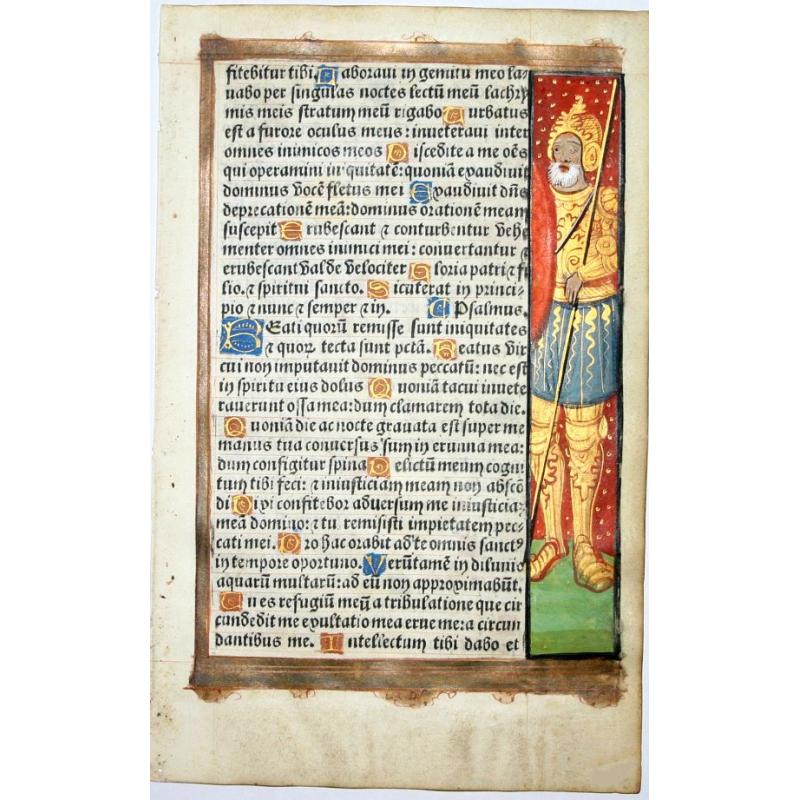 fitebitur tibi. Laboraui in gemitu meo la
uabo per singulas noctes lectū meū lachry
mis meis stratum meū rigabo Turbatus
est a furore oculus meus: inueteraui inter
omnes inimicos meos Discedite a me oēs
qui operamini iniquitatē: quoniā exaudiuit
dominus vocē fletus mei Exaudiuit dn̄s
deprecationē meā: dominus orationē meam
suscepit Erubescant ⁊ conturbentur vehe
menter omnes inimici mei: conuertantur ⁊
erubescant valde velociter Gloria patri ⁊ fi
lio. ⁊ spiritui sancto. Sicut erat in princi-
pio ⁊ nunc ⁊ semper ⁊ in. Psalmus.
Beati quorū remisse sunt iniquitates
⁊ quorū tecta sunt pctā. Beatus vir
cui non imputauit dominus peccatū: nec est
in spiritu eius dolus Quoniā tacui inuete
rauerunt ossa mea: dum clamarem tota die.
Quoniā die ac nocte grauata est super me
manus tua conuersus sum in erunna mea:
dum configitur spina Delictū meum cogni
tum tibi feci: ⁊ iniusticiam meam non abscō
di Dixi confitebor aduersum me iniusticiā
meā domino: ⁊ tu remisisti impietatem pec-
cati mei. Pro hac orabit ad te omnis sanctꝰ
in tempore oportuno. Verūtamē in diluuio
aquarū multarū: ad eū non approximabūt.
Tu es refugiū meū a tribulatione que cir
cundedit me exultatio mea erue me a circun
dantibus me. Intellectum tibi dabo et